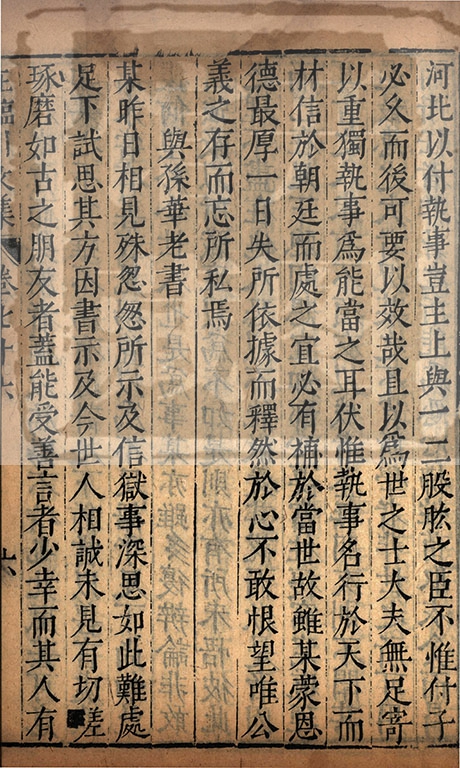 河北以付執事豈主上與一二股肱之臣不惟付予
必久而後可要以效哉且以為世之士大夫無足寄
以重獨執事爲能當之耳伏惟執事名行於天下而
材信於朝廷而處之宜必有補於當世故雖某蒙恩
德最厚一日失所依據而釋然於心不敢恨望唯公
義之存而忘所私焉
與孫華老書
某昨日相見殊怱怱所示及信獄事深思如此難處
足下試思其方因書示及今世人相誠未見有切磋
琢磨如古之朋友者蓋能受善言者少幸而其人有
王臨川文集 卷七十六 六